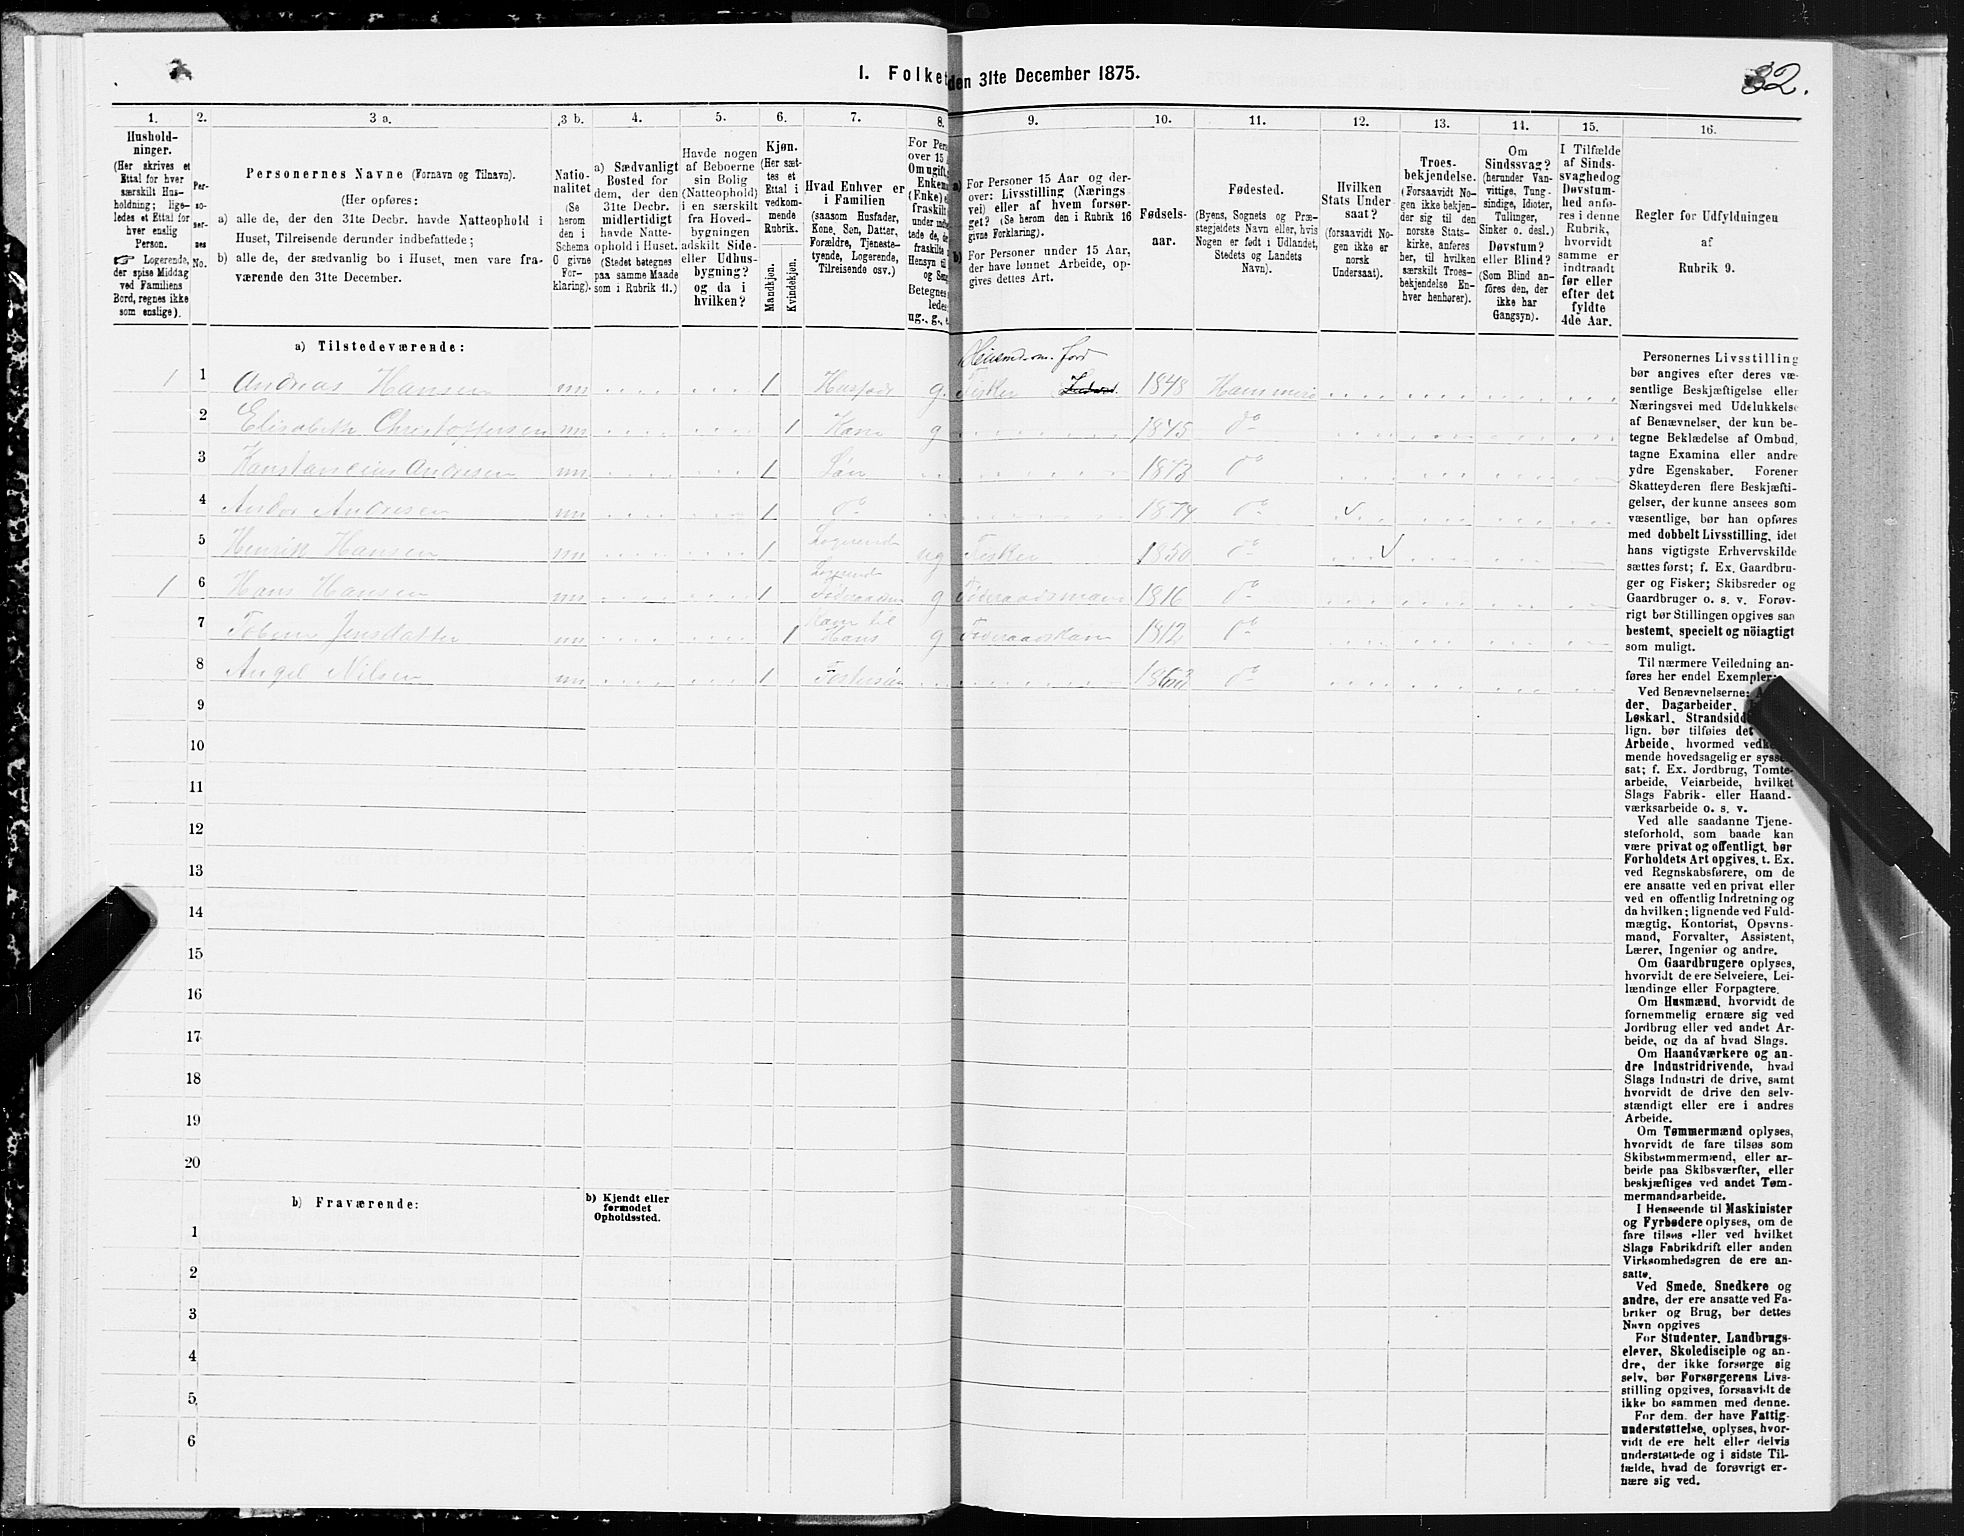 I. Folket den 31te December 1875.
32.
1.
Hushold-
ninger.
(Her skrives et
Ettal for hver
særskilt Hus-
holdning; lige-
ledes et Ettal for
hver enslig
Person.
☞ Logerende,
der spise Middag
ved Familiens
Bord, regnes ikke
som enslige).
2.
Per-
so-
ner-
nes
No.
3 a.
Personernes Navne (Fornavn og Tilnavn).
(Her opføres:
a) alle de, der den 31te Decbr. havde Natteophold i
Huset, Tilreisende derunder indbefattede;
b) alle de, der sædvanlig bo i Huset, men vare fra-
værende den 31te December.
3 b.
Natio-
nalitet
(Se
herom
den i
Schema
O givne
For-
klaring).
4.
a) Sædvanligt
Bosted for
dem, der den
31te Decbr.
midlertidigt
havde Natte-
ophold i Huset.
(Stedet betegnes
paa samme Maade
som i Rubrik 11.)
5.
Havde nogen
af Beboerne
sin Bolig
(Natteophold)
i en særskilt
fra Hoved-
bygningen
adskilt Side-
eller Udhus-
bygning?
og da i
hvilken?
6.
Kjøn.
(Her sæt-
tes et
Ettal i
vedkom-
mende
Rubrik.
Mandkjøn.
Kvindekjøn.
7.
Hvad Enhver er
i Familien
(saasom Husfader,
Kone, Søn, Datter,
Forældre, Tjeneste-
tyende, Logerende,
Tilreisende osv.)
8.
For Pers
over 15 A
Om ugift,
Enkem
(Enke) e
fraskilt
under indbe
tede de, de
fraskilte
Hensyn til
og Sen
Betegnes
ledes:
ug., g., e.
9.
a) For Personer 15 Aar og der-
over: Livsstilling (Nærings
vei) eller af hvem forsør-
get? (Se herom den i Rubrik 16
givne Forklaring).
b) For Personer under 15 Aar,
der have lønnet Arbeide, op-
gives dettes Art.
10.
Fødsels-
aar.
11.
Fødested.
(Byens, Sognets og Præ-
stegjeldets Navn eller, hvis
Nogen er født i Udlandet,
Stedets og Landets
Navn).
12.
Hvilken
Stats Under
saat?
(forsaavidt No-
gen ikke er
norsk
Undersaat).
13.
Troes-
bekjendelse.
(Forsaavidt No-
gen ikke bekjen-
der sig til den
norske Stats-
kirke, anføres
her, til hvilken
særskilt Troes-
bekjendelse En-
hver henhører).
14.
Om
Sindssvag?
(herunder Van-
vittige, Tung-
sindige, Idioter,
Tullinger,
Sinker o. desl.)
Døvstum?
eller Blind?
(Som Blind an-
føres den, der
ikke har
Gangsyn).
15.
I Tilfælde
af Sinds-
svaghed og
Døvstum-
hed anfø-
res i denne
Rubrik,
hvorvidt
samme er
indtraadt
før eller
efter det
fyldte
4de Aar.
16.
Regler for Udfyldningen
af
Rubrik 9.
a) Tilstedeværende:
Husmd. m. Jord
1 1 Andreas Hansen nn 1 Husfadr g. Fisker 1848 Hammerø
2 Elisabeth Christoffersen nn 1 Kone g 1845 do
3 Konstancius Andresen nn 1 Søn 1873 do
4 Andor Andresen nn 1 do 1874 do
5 Henrik Hansen nn 1 Logerend ug Fisker 1850 do
Logerend
1 6 Hans Hansen nn 1 Føderaadsm g Føderaadsmand 1816 do
Kone til
7 Jensdatter nn 1 Hans g Føderaadskone 1812 do
8 Angel Nilsen nn 1 Fostersøn 1863 do
9
10
11
12
13
14
15
16
17
18
19
20
b) Fraværende:
b) Kjendt eller
formodet
Opholdssted.
1
2
3
4
5
6
Personernes Livsstilling
bør angives efter deres væ-
sentlige Beskjæftigelse eller
Næringsvei med Udelukkelse
af Benævnelser, der kun be-
tegne Beklædelse af Ombud,
tagne Examina eller andre
ydre Egenskaber. Forener
Skatteyderen flere Beskjæfti-
gelser, der kunne ansees som
væsentlige, bør han opføres
med dobbelt Livsstilling, idet
hans vigtigste Erhvervskilde
sættes først; f. Ex. Gaardbru-
ger og Fisker; Skibsreder og
Gaardbruger o. s. v. Forøv-
rigt bør Stillingen opgives saa
bestemt, specielt og nöiagtigt
som muligt.
Til nærmere Veiledning an-
føres her endel Exempler:
Ved Benævnelserne: A
der, Dagarbeider,
Løskarl, Strandsidd
lign. bør tilføies det
Arbeide, hvormed vedk
mende hovedsagelig er syssel
sat; f. Ex. Jordbrug, Tomte-
arbeide, Veiarbeide, hvilket
Slags Fabrik- eller Haand-
værksarbeide o. s. v.
Ved alle saadanne Tjene-
steforhold, som baade kan
være privat og offentligt, bør
Forholdets Art opgives, t. Ex.
ved Regnskabsførere, om de
ere ansatte ved en privat eller
ved en offentlig Indretning og
da hvilken; lignende ved Fuld-
mægtig, Kontorist, Opsyns-
mand, Forvalter, Assistent,
Lærer, Ingeniør og andre.
Om Gaardbrugere oplyses,
hvorvidt de ere Selveiere, Lei-
lændinge eller Forpagtere.
Om Husmænd, hvorvidt de
fornemmelig ernære sig ved
Jordbrug eller ved andet Ar-
beide, og da af hvad Slags.
Om Haandværkere og an-
dre Industridrivende, hvad
Slags Industri de drive, samt
hvorvidt de drive den selv-
stændigt eller ere i andres
Arbeide.
Om Tømmermænd oplyses,
hvorvidt de fare tilsøs som
Skibstømmermænd, eller ar-
beide paa Skibsværfter, eller
beskjæftiges ved andet Tøm-
mermandsarbeide.
I Henseende til Maskinister
og Fyrbødere oplyses, om de
fare tilsøs eller ved hvilket
Slags Fabrikdrift eller anden
Virksomhedsgren de ere an-
satte.
Ved Smede, Snedkere og
andre, der ere ansatte ved Fa-
briker og Brug, bør dettes
Navn opgives
For Studenter, Landbrugs-
elever, Skoledisciple og an-
dre, der ikke forsørge sig
selv, bør Forsørgerens Livs-
stilling opgives, forsaavidt de
ikke bo sammen med denne.
For dem, der have Fattig-
understøttelse, oplyses, hvor-
vidt de ere helt eller delvis
understøttede og i sidste Til-
fælde, hvad de forøvrigt er-
nære sig ved.